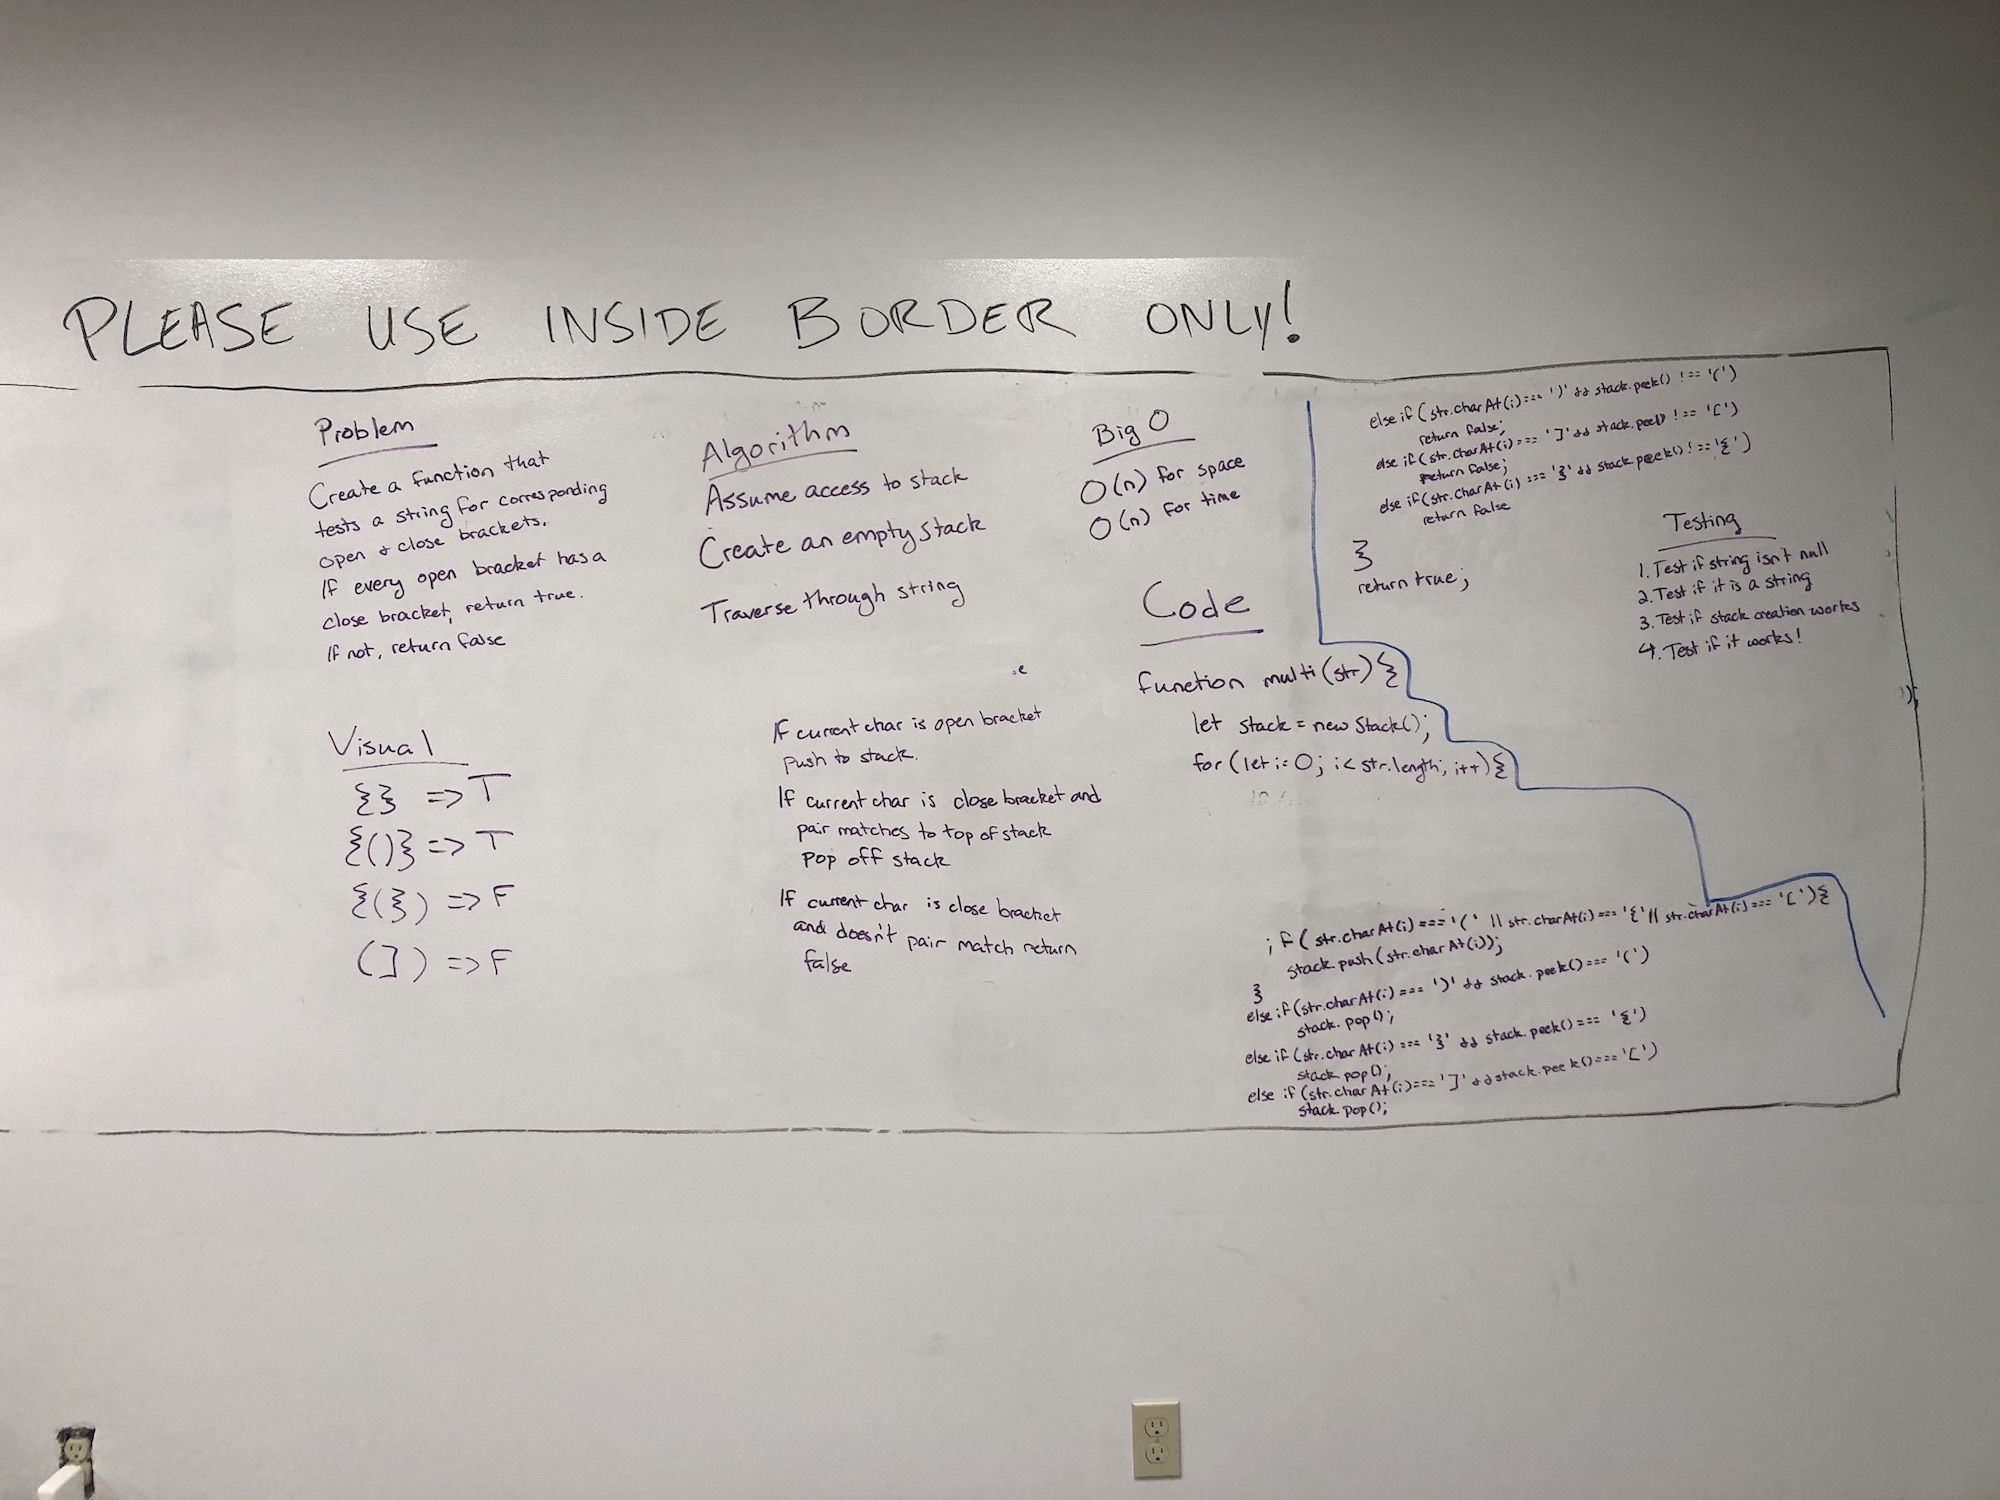 PLEASE USE INSIDE BORDER ONLY!
Problem
Create a function that
tests a string for corresponding
open & close brackets.
If every open bracket has a
close bracket, return true.
If not, return false
Visual
{} => T
{()} => T
{(}) => F
(]) => F
Algorithm
Assume access to stack
Create an empty stack
Traverse through string
If current char is open bracket
push to stack.
If current char is close bracket and
pair matches to top of stack
pop off stack
If current char is close bracket
and doesn't pair match return
false
Big O
O(n) for space
O(n) for time
Code
function multi(str){
let stack = new Stack();
for (let i=0; i< str.length; i++){
if ( str.charAt(i) === '(' || str.charAt(i) === '{' || str.charAt(i) === '['){
stack.push(str.charAt(i));
}
else if (str.charAt(i) === ')' && stack.peek() === '(')
stack.pop();
else if (str.charAt(i) === '}' && stack.peek() === '{')
stack.pop();
else if (str.charAt(i) === ']' && stack.peek() === '[')
stack.pop();
else if (str.charAt(i) === ')' && stack.peek() !== '(')
return false;
else if (str.charAt(i) === ']' && stack.peek() !== '[')
return false;
else if (str.charAt(i) === '}' && stack.peek() !== '{')
return false
}
return true;
Testing
1. Test if string isn't null
2. Test if it is a string
3. Test if stack creation works
4. Test if it works!